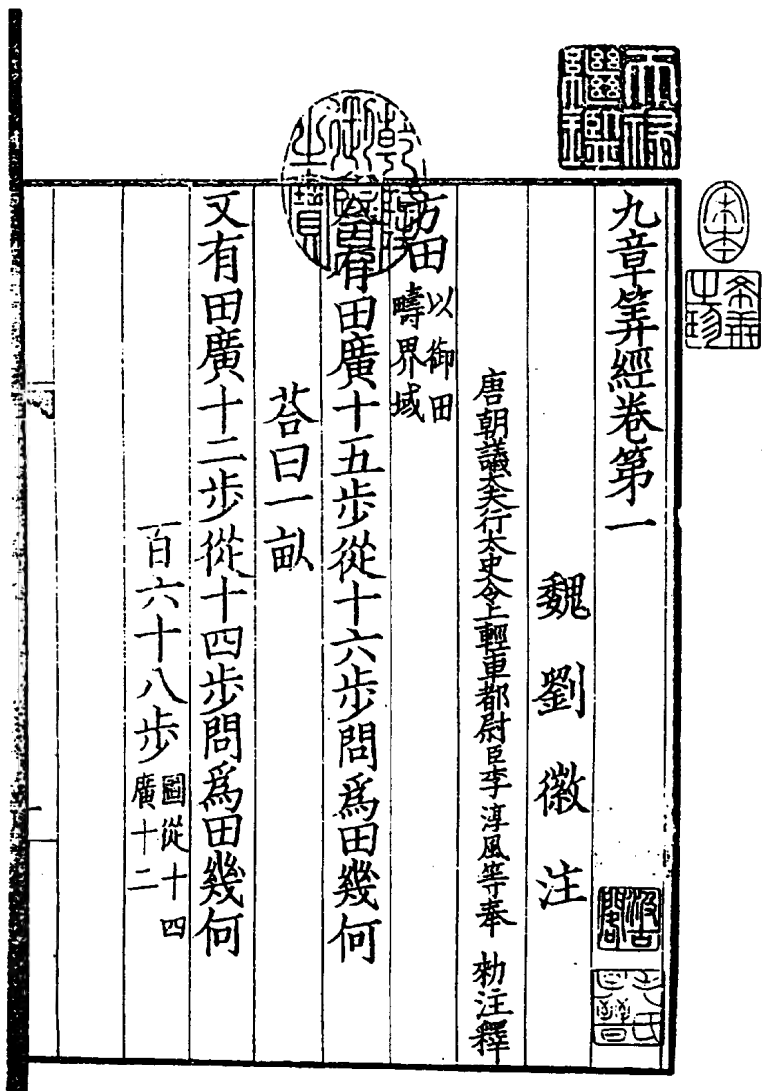 九章筭經卷第一
魏劉徽注
唐朝議大夫行太史令上輕車都尉臣李淳風等奉 勑注釋
方田以御田
疇界域
今有田廣十五步從十六步問爲田幾何
荅曰一畝
又有田廣十二步從十四步問爲田幾何
一百六十八步圖從十四
廣十二
天祿
繼鑑
汲古
閣